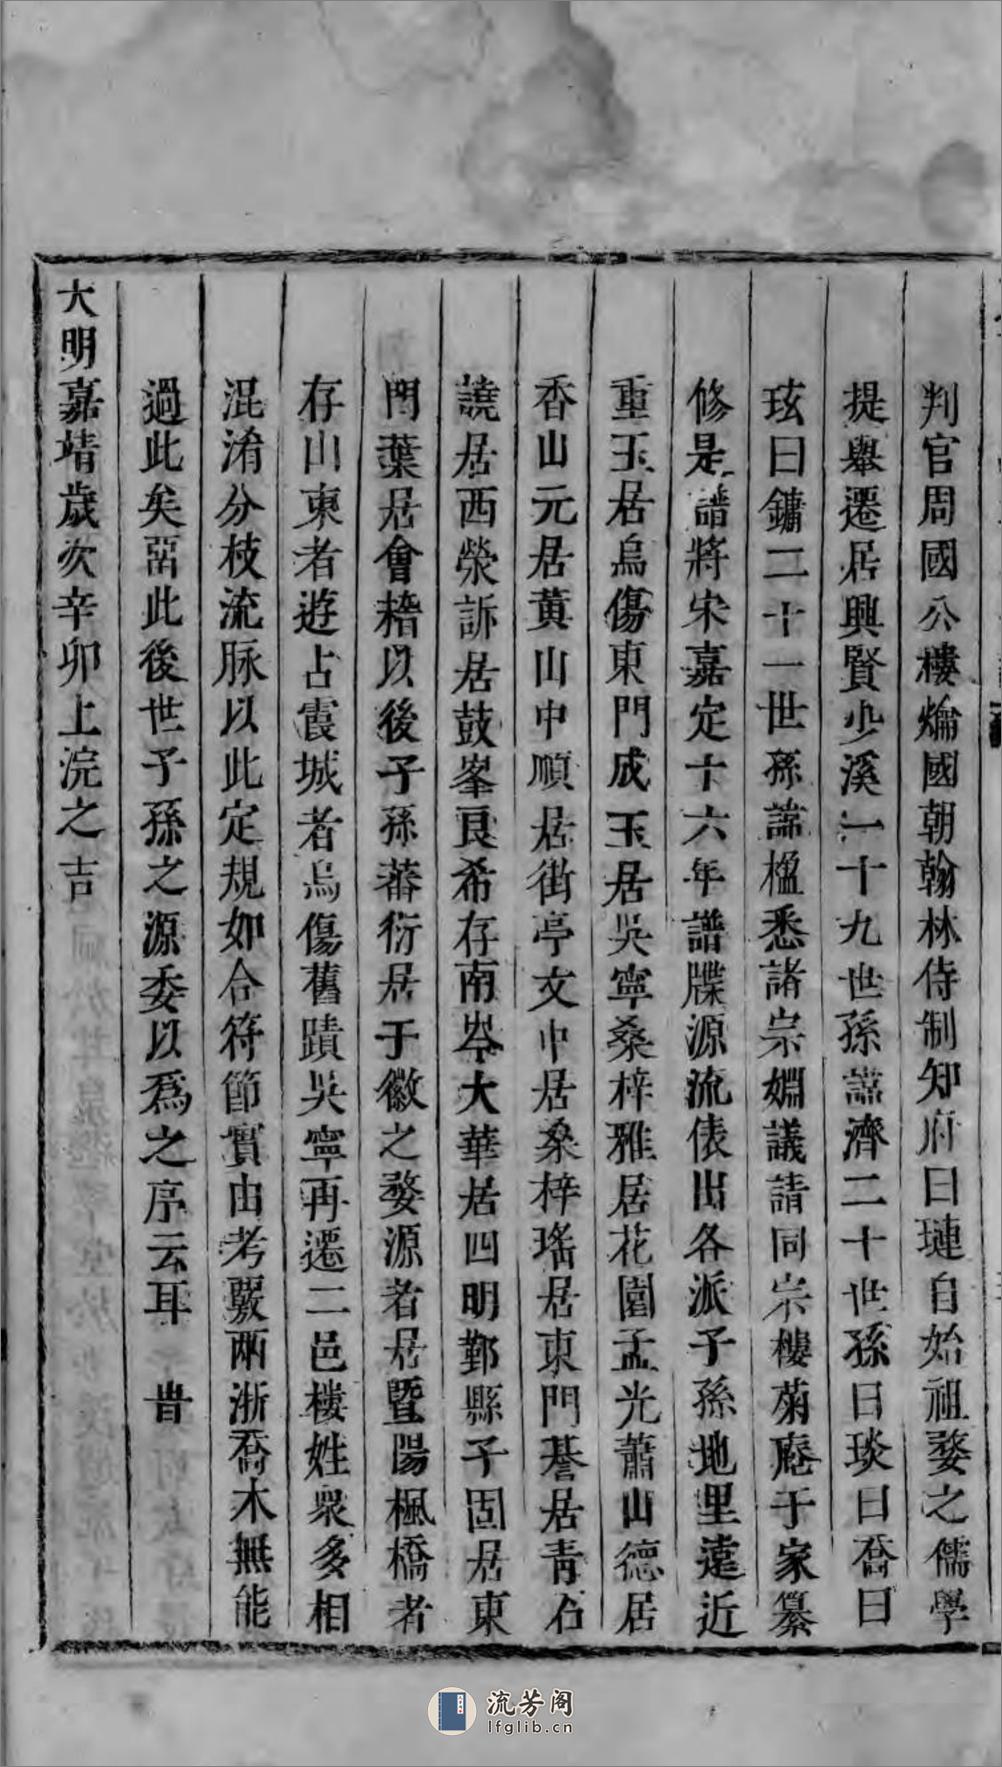 判官周國公樓爚國朝翰林侍制知府曰璉自始祖婺之儒學
提舉遷居興賢少溪一十九世孫諱濟二十世孫曰琰曰喬曰
玹曰鏞二十一世孫諱楹悉諸宗婣議請同宗樓菊庭于家纂
修是譜將宋嘉定十六年譜牒源流俵出各派子孫地里遠近
重玉居烏傷東門成玉居吳寧桑梓雅居花園孟光蕭山德居
香山元居黃山中順居街亭文中居桑梓瑤居東門諅居青石
譊居西滎訴居鼓峯良希存南岑大華居四明鄞縣子固居東
門葉居會稽以後子孫蕃衍居于徽之婺源者居暨陽楓橋者
存山東者遊占霞城者烏傷舊蹟吳寧再遷二邑樓姓衆多相
混淆分枝流脉以此定規如合符節實由考覈兩浙喬木無能
過此矣啚此後世子孫之源委以爲之序云耳 旹
大明嘉靖歲次辛卯上浣之吉
流芳阁
lfglib.cn